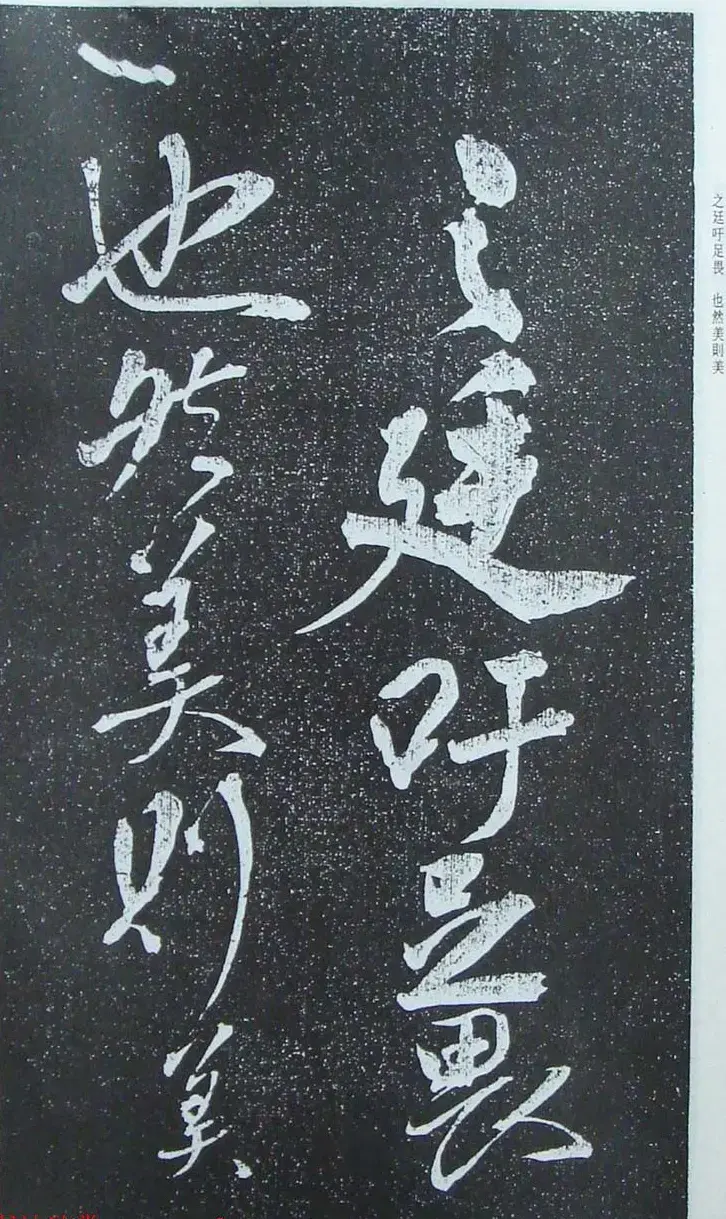 之廷吁足畏
也然美則美
之廷吁足畏 也然美則美